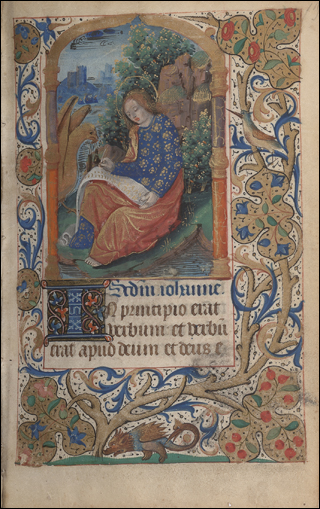 Scdm iohanne
IN principio erat
verbum et verbũ
erat apud deum et deus